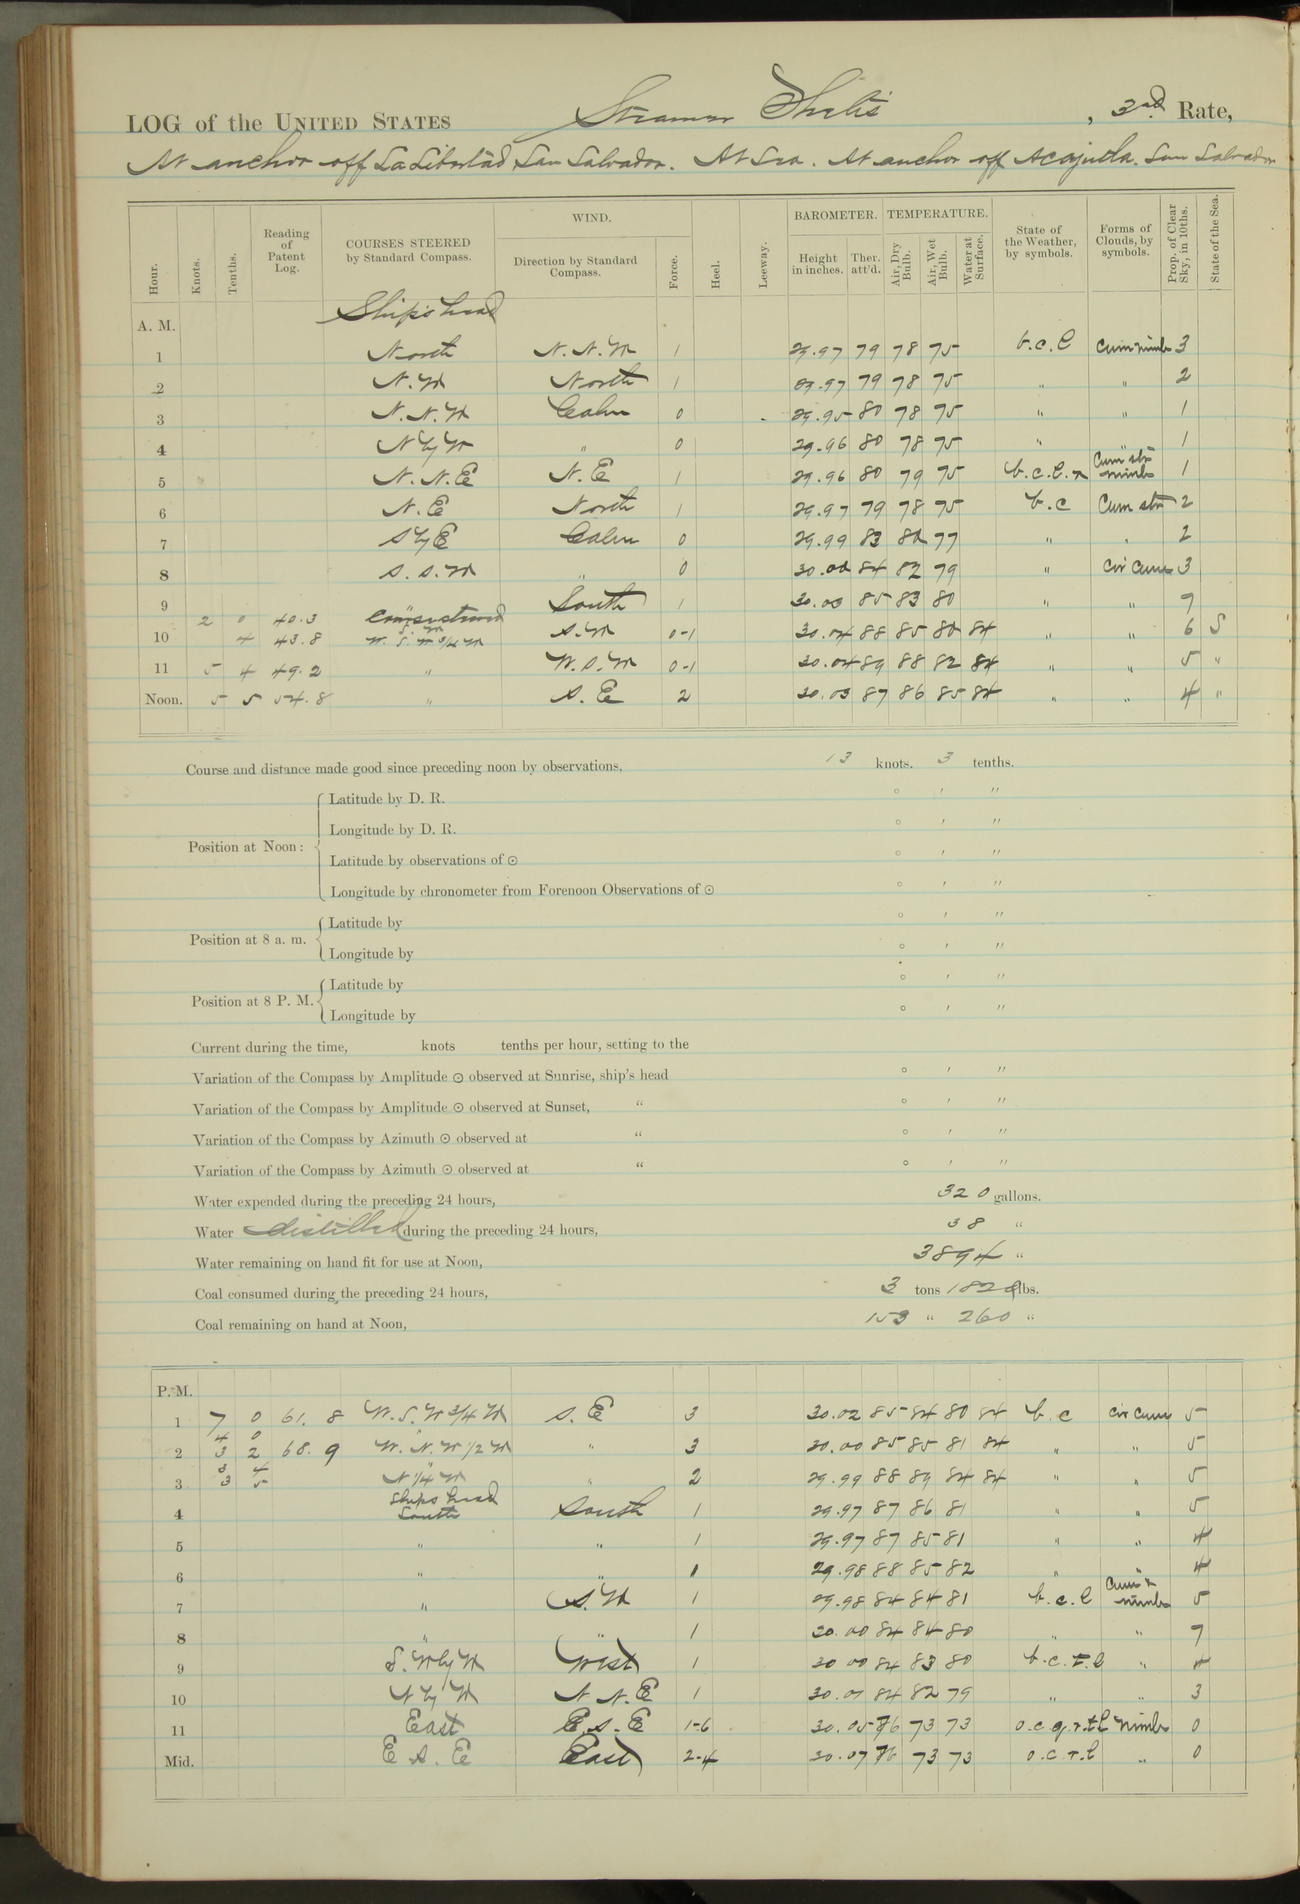 LOG of the UNITED STATES Steamer Thetis, 3rd Rate,
At anchor off La Libertad San Salvador. At Sea. At anchor off Acajutla. San Salvador
Hour. Knots. Tenths. Reading of Patent Log. COURSES STEERED by Standard Compass. WIND. Direction by Standard Compass. Force. Heel. Leeway. BAROMETER. Height in inches. Ther. att'd. TEMPERATURE. Air, Dry Bulb. Air, Wet Bulb. Water at Surface. State of the Weather, by symbols. Forms of Clouds, by symbols. Prop. of Clear Sky, in 10ths. State of the Sea.
A. M. Ship's head
1 North N.N.W 1 29.97 79 78 75 b.c.l Cum nimb 3
2 N.W North 1 29.97 79 78 75 " " 2
3 N.N.W Calm 0 29.95 80 78 75 " " 1
4 N by W " 0 29.96 80 78 75 " " 1
5 N.N.E N.E 1 29.96 80 79 75 b.c.l.r Cum str nimb 1
6 N.E North 1 29.97 79 78 75 b.c Cum str 2
7 S by E Calm 0 29.99 83 80 77 " " 2
8 S.S.W " 0 30.00 84 82 79 " Cir Cum 3
9 " South 1 30.03 85 83 80 " " 7
2 0 40.3
10 4 43.8 W.S.W 3/4 W S.W 0-1 30.04 88 85 80 84 " " 6 S
11 5 4 49.2 " W.S.W 0-1 30.04 89 88 82 84 " " 5 "
Noon. 5 5 54.8 " S.E 2 30.03 87 86 85 84 " " 4 "
Course and distance made good since preceding noon by observations, 13 knots. 3 tenths.
Position at Noon:
Latitude by D. R. ° ′ ″
Longitude by D. R. ° ′ ″
Latitude by observations of ☉ ° ′ ″
Longitude by chronometer from Forenoon Observations of ☉ ° ′ ″
Position at 8 a. m.
Latitude by ° ′ ″
Longitude by ° ′ ″
Position at 8 P. M.
Latitude by ° ′ ″
Longitude by ° ′ ″
Current during the time, knots tenths per hour, setting to the
Variation of the Compass by Amplitude ☉ observed at Sunrise, ship's head ° ′ ″
Variation of the Compass by Amplitude ☉ observed at Sunset, " ° ′ ″
Variation of the Compass by Azimuth ☉ observed at " ° ′ ″
Variation of the Compass by Azimuth ☉ observed at " ° ′ ″
Water expended during the preceding 24 hours, 320 gallons.
Water distilled during the preceding 24 hours, 38 "
Water remaining on hand fit for use at Noon, 3894 "
Coal consumed during the preceding 24 hours, 3 tons 1820 lbs.
Coal remaining on hand at Noon, 153 " 260 "
P. M.
1 7 0 61.8 W.S.W 3/4 W S.E 3 30.02 85 84 80 84 b.c cir cum 5
4 0
2 3 2 68.9 W.N.W 1/2 W " 3 30.00 85 85 81 84 " " 5
3 4
3 3 5 N 1/4 W " 2 29.99 88 89 84 84 " " 5
Ships head
4 South South 1 29.97 87 86 81 " " 5
5 " " 1 29.97 87 85 81 " " 4
6 " " 1 29.98 88 85 82 " " 4
7 " S.W 1 29.98 84 84 81 b.c.l Cum & nimb 5
8 " " 1 30.00 84 84 80 " " 7
9 S.W by W West 1 30 00 84 83 80 b.c.r.l " 4
10 N by W N N.E 1 30.01 84 82 79 " " 3
11 East E.S.E 1-6 30.05 76 73 73 o.c.q.r.t.l nimb 0
Mid. E S. E East 2-4 30.07 76 73 73 o.c.r.l " 0